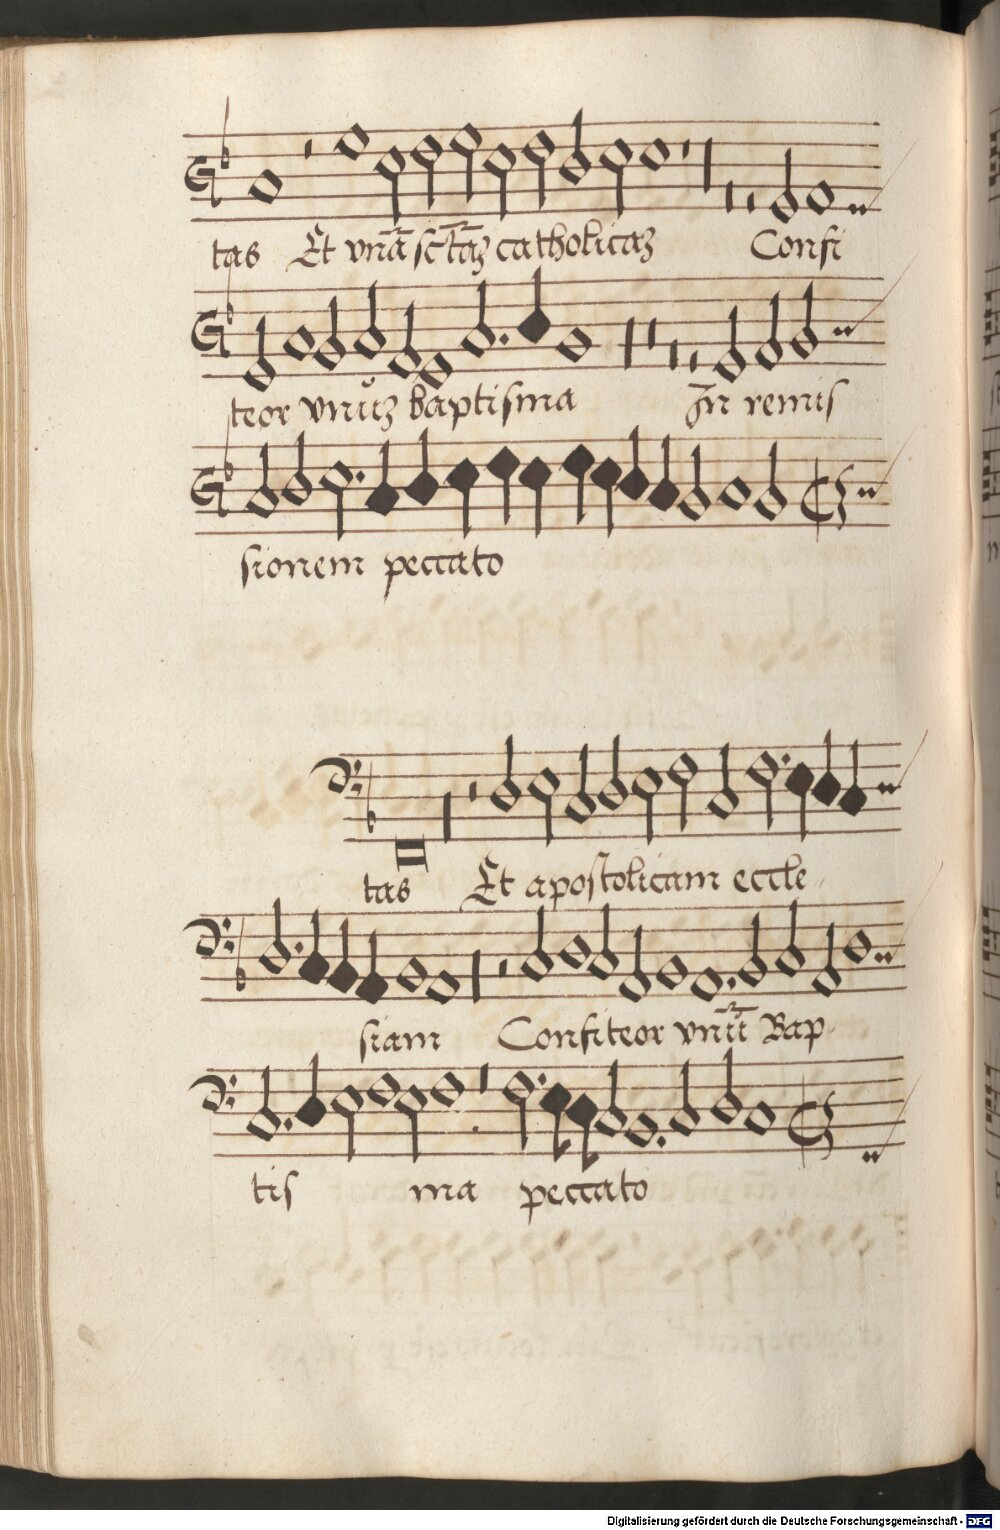 tas Et vnā sctāȝ catholicaȝ Confi
teor vnūȝ baptisma In remis
sionem peccato
tas Et apostolicam eccle
siam Confiteor vnū Bap
tis ma peccato
Digitalisierung gefördert durch die Deutsche Forschungsgemeinschaft - DFG